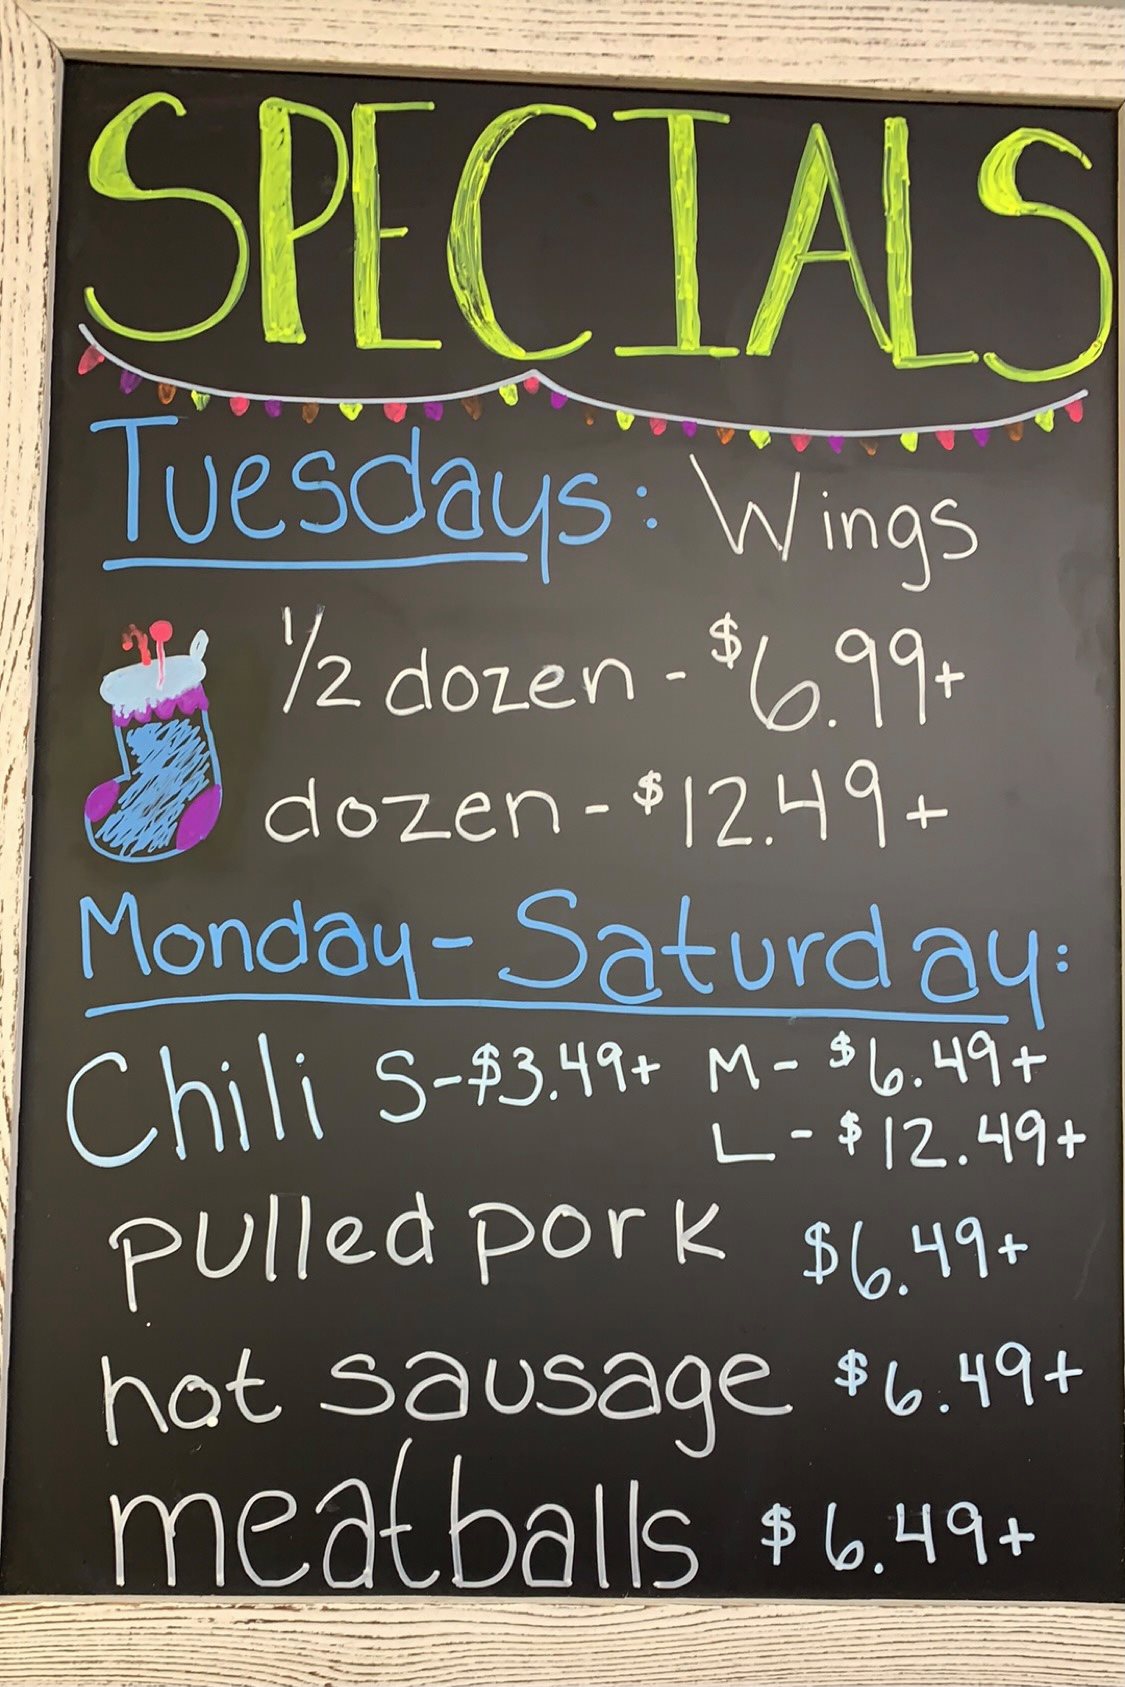 SPECIALS
Tuesdays: Wings
1/2 dozen - $6.99+
dozen - $12.49+
Monday - Saturday:
Chili S - $3.49+ M - $6.49+
L - $12.49+
pulled pork $6.49+
hot sausage $6.49+
meatballs $6.49+